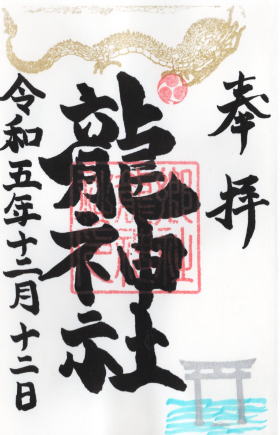 奉拝
龍神社
令和五年十二月十二日